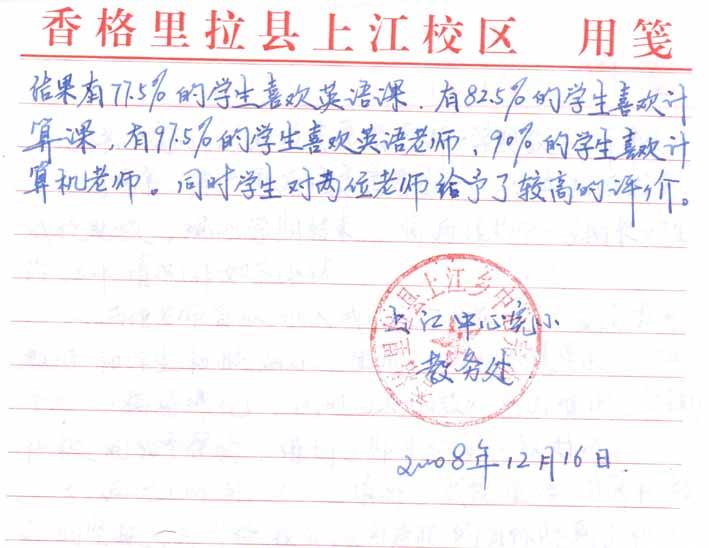 香格里拉县上江校区 用笺
结果有77.5%的学生喜欢英语课、有82.5%的学生喜欢计
算课，有97.5%的学生喜欢英语老师、90%的学生喜欢计
算机老师。同时学生对两位老师给予了较高的评价。
上江中心完小
教务处
2008年12月16日.